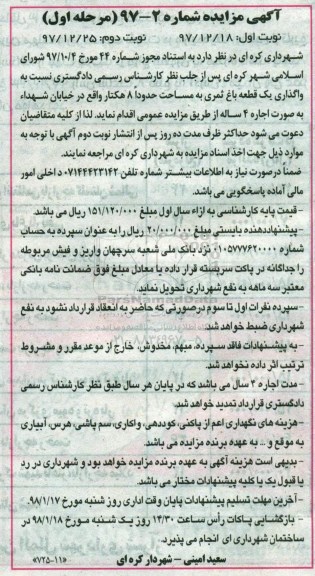 آگهی مزایده شماره ۲-۹۷ (مرحله اول)
نوبت اول: ۹۷/۱۲/۱۸ نوبت دوم: ۹۷/۱۲/۲۵
شهرداری کره ای در نظر دارد به استناد مجوز شماره ۴۴ مورخ ۹۷/۱۰/۴ شورای
اسلامی شهر کره ای پس از جلب نظر کارشناس رسمی دادگستری نسبت به
واگذاری یک قطعه باغ ثمری به مساحت حدوداً ۸ هکتار واقع در خیابان شهداء
به صورت اجاره ۴ ساله از طریق مزایده عمومی اقدام نماید. لذا از کلیه متقاضیان
دعوت می شود حداکثر ظرف مدت ده روز پس از انتشار نوبت دوم آگهی با توجه به
موارد ذیل جهت اخذ اسناد مزایده به شهرداری کره ای مراجعه نمایند.
ضمناً در صورت نیاز به اطلاعات بیشتر شماره تلفن ۰۷۱۴۴۴۲۳۱۴۲ داخلی امور
مالی آماده پاسخگویی می باشد.
- قیمت پایه کارشناسی به ازاء سال اول مبلغ ۱۵۱/۱۲۰/۰۰۰ ریال می باشد.
- پیشنهاددهنده بایستی مبلغ ۲۰/۰۰۰/۰۰۰ ریال را به عنوان سپرده به حساب
شماره ۰۱۰۵۷۷۷۶۲۰۰۰۰ نزد بانک ملی شعبه سرچهان واریز و فیش مربوطه
را جداگانه در پاکت سربسته قرار داده یا معادل مبلغ فوق ضمانت نامه بانکی
معتبر سه ماهه به نفع شهرداری تحویل نماید.
- سپرده نفرات اول تا سوم درصورتی که حاضر به انعقاد قرارداد نشود به نفع
شهرداری ضبط خواهد شد.
- به پیشنهادات فاقد سپرده، مبهم، مخدوش، خارج از موعد مقرر و مشروط
ترتیب اثر داده نخواهد شد.
- مدت اجاره ۴ سال می باشد که در پایان هر سال طبق نظر کارشناس رسمی
دادگستری قرارداد تمدید خواهد شد.
- هزینه های نگهداری اعم از پاکنی، کوددهی، واکاری، سم پاشی، هرس، آبیاری
به موقع و ... به عهده برنده مزایده می باشد.
- بدیهی است هزینه آگهی به عهده برنده مزایده خواهد بود و شهرداری در رد
یا قبول یک یا کلیه پیشنهادات مختار می باشد.
- آخرین مهلت تسلیم پیشنهادات پایان وقت اداری روز شنبه مورخ ۹۸/۱/۱۷.
- بازگشایی پاکات رأس ساعت ۱۳/۳۰ روز یک شنبه مورخ ۹۸/۱/۱۸ در
ساختمان شهرداری کره ای انجام می پذیرد.
سعید امینی - شهردار کره ای «۷۲۵-۱۱»